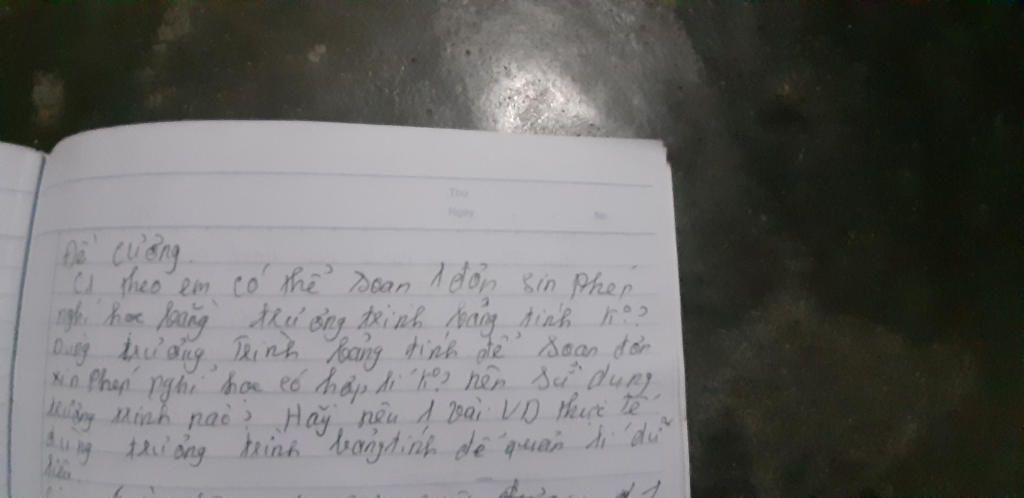 Thứ
Ngày
No.
Đề Cương.
C1 theo em có thể soạn 1 đơn xin phép
nghỉ học bằng trương trình bảng tính k°?
Dùng trương Trình bảng tính để soạn đơn
xin phép nghỉ học có hợp lí k°? nên sử dụng
trương trình nào? Hãy nêu 1 vài VD thực tế
dùng trương trình bảng tính để quản lí dữ
liệu.